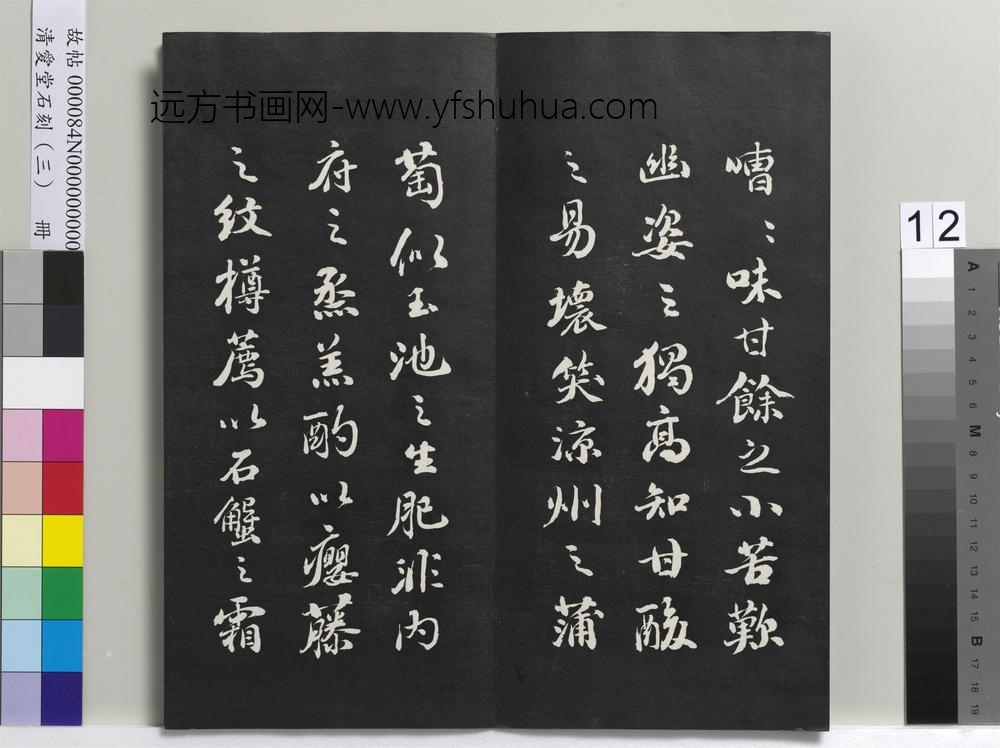 嘈〻味甘餘之小苦歎
幽姿之獨高知甘酸
之易壞笑涼州之蒲
萄似玉池之生肥非内
府之烝羔酌以癭藤
之紋樽薦以石蟹之霜
远方书画网-www.yfshuhua.com
故帖 000084N000000000
清愛堂石刻(三) 冊
12
A 1 2 3 4 5 6 M 8 9 10 11 12 13 14 15 B 17 18 19